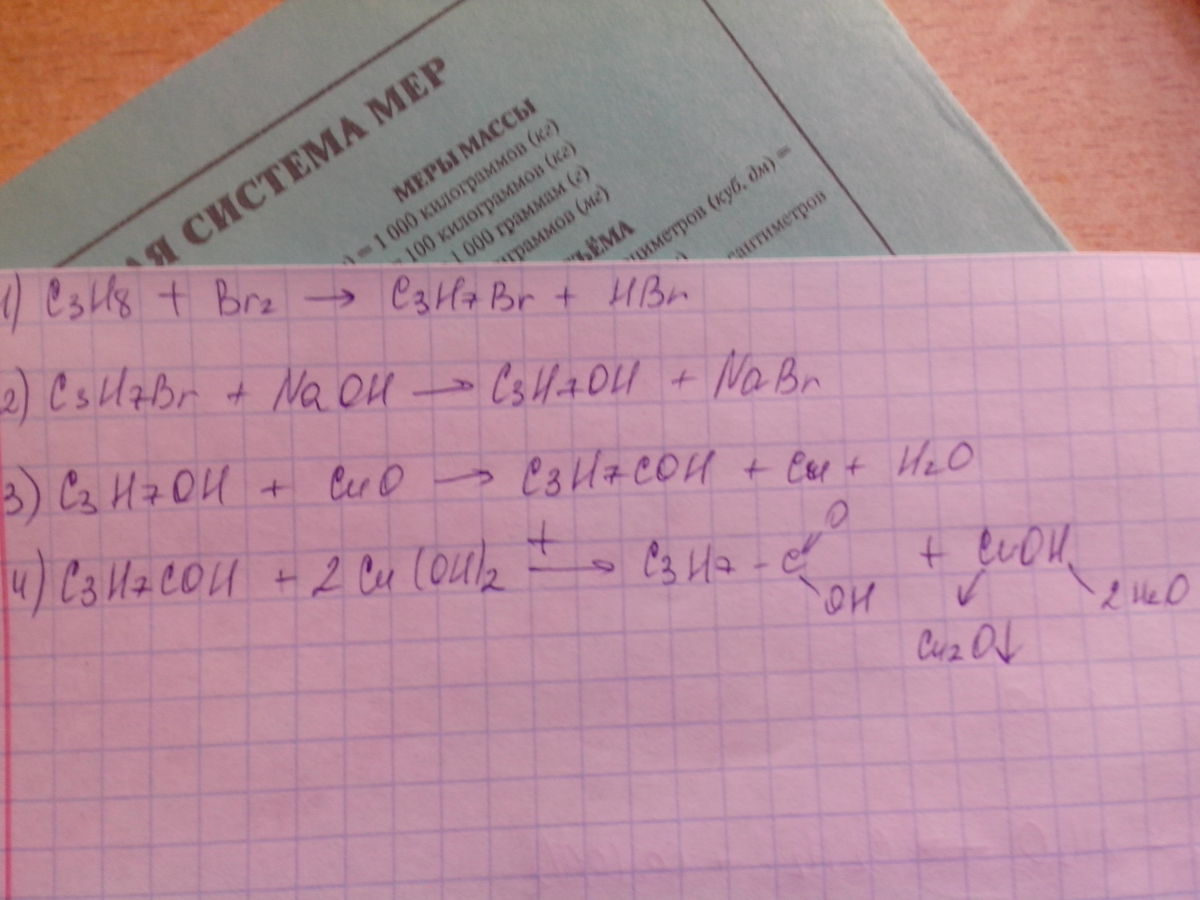 АЯ СИСТЕМА МЕР
МЕРЫ МАССЫ
) = 1 000 килограммов (кг)
= 100 килограммов (кг)
1 000 граммам (г)
граммов (мг)
ЪЁМА
циметров (куб, дм) =
сантиметров
1) C3H8 + Br2 → C3H7Br + HBr
2) C3H7Br + NaOH → C3H7OH + NaBr
3) C3H7OH + CuO → C3H7COH + Cu + H2O
4) C3H7COH + 2Cu(OH)2 t→ C3H7-C=O OH + CuOH 2H2O
Cu2O↓